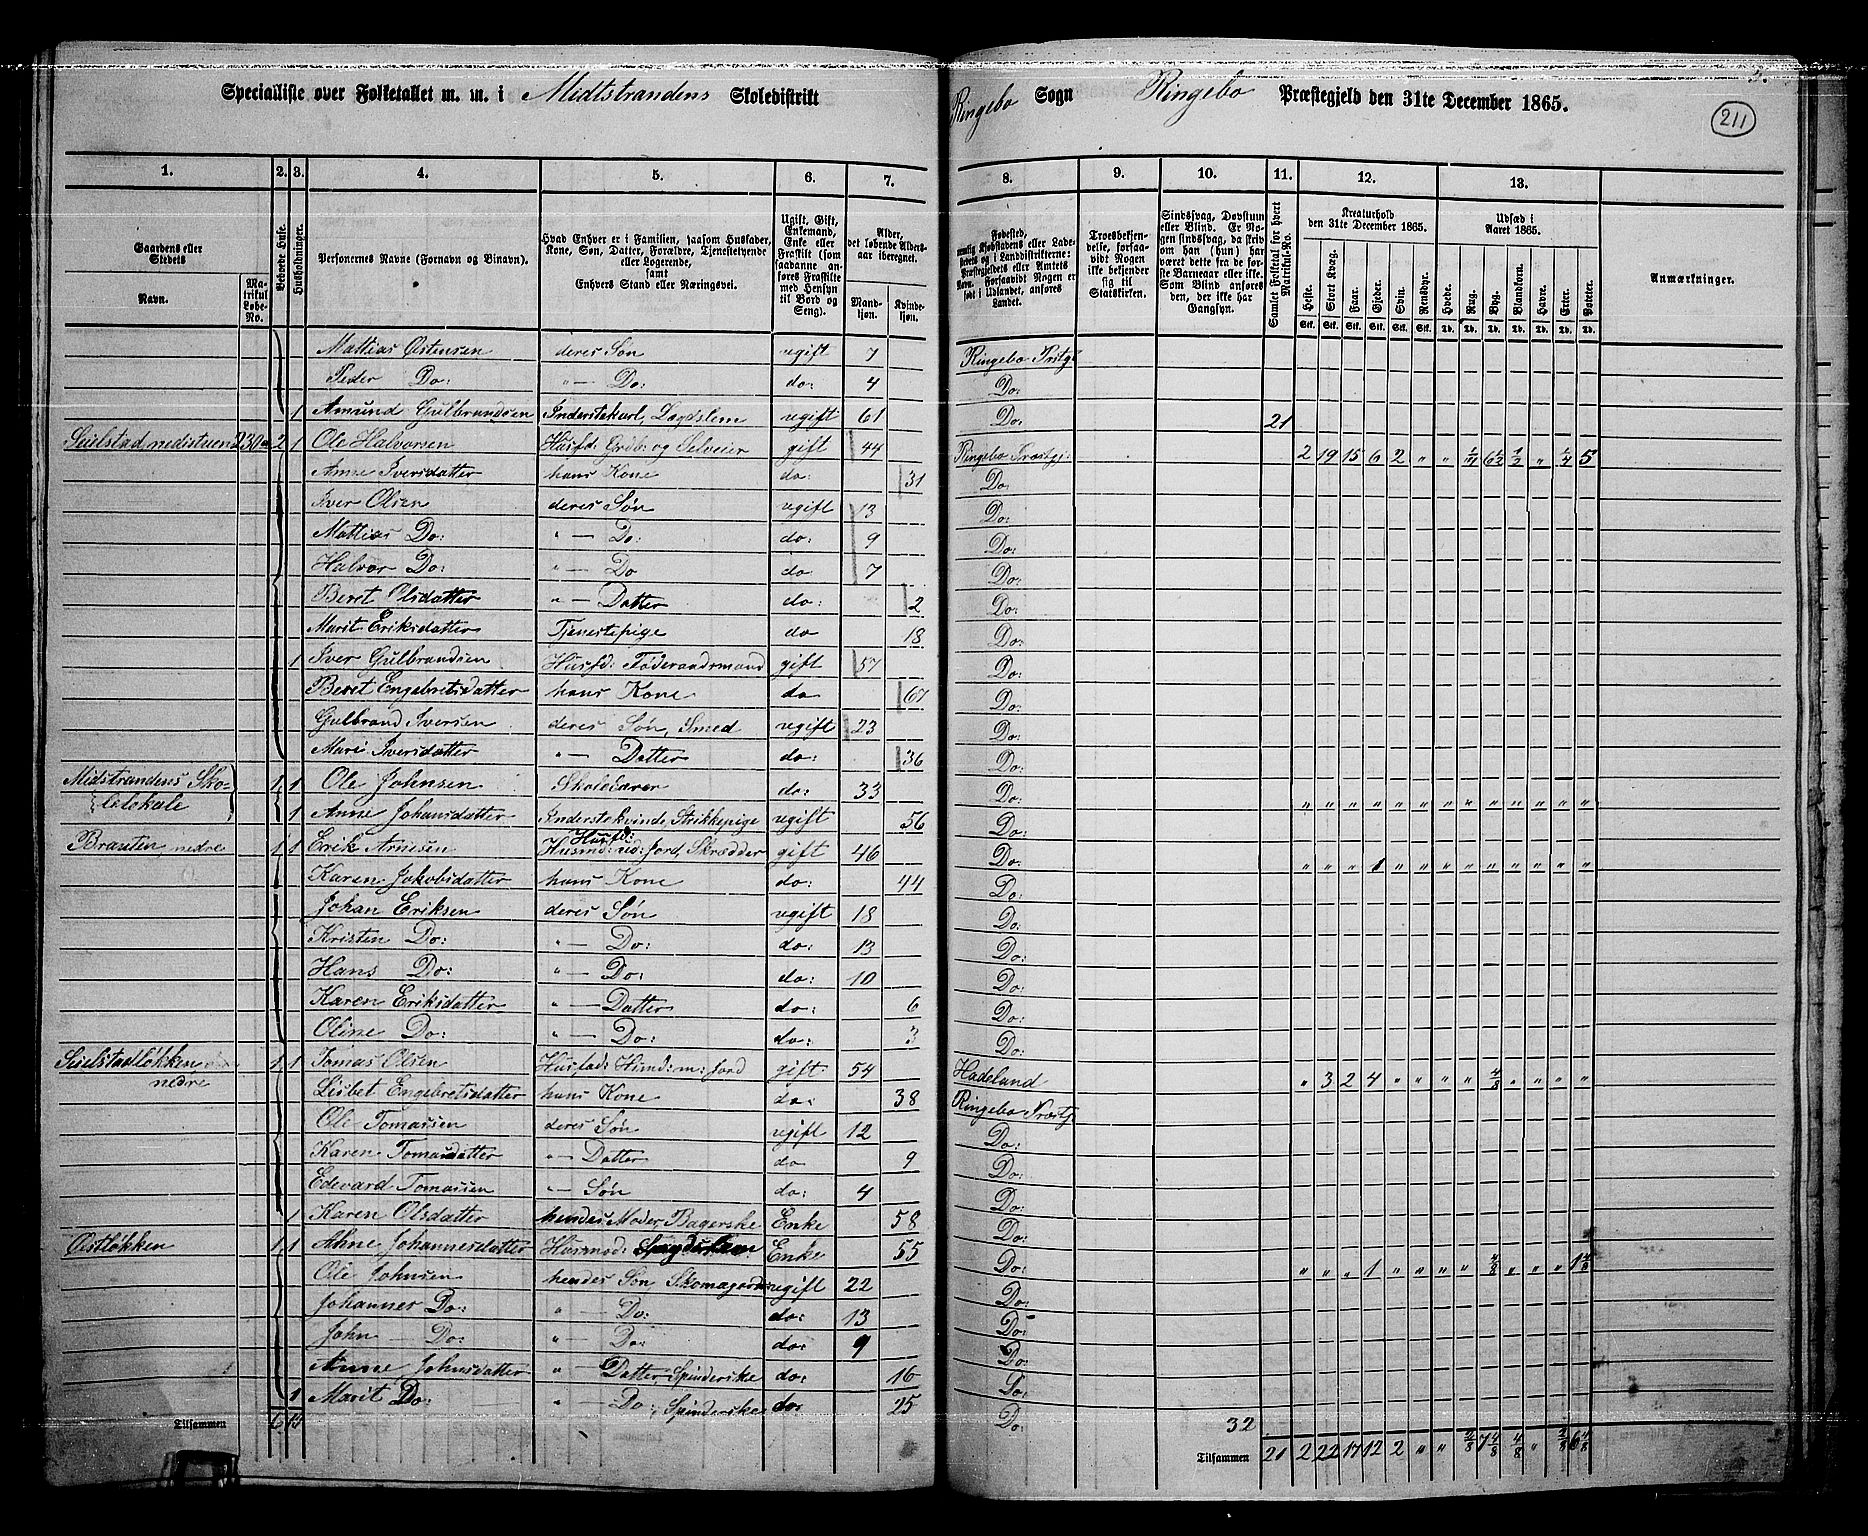 Specialliste over Folketallet m. m. i Midtstrandens Skoledistrikt Ringebo Sogn Ringebo Præstegjeld den 31te December 1865.
211
1. 2. 3. 4. 5. 6. 7. 8. 9. 10. 11. 12. 13.
Gaardens eller Stedets Navn.
Matrikul Løbe-No.
Beboede Huse.
Husholdninger.
Personernes Navne (Fornavn og Binavn).
Hvad Enhver er i Familien, saasom Husfader, Kone, Søn, Datter, Forældre, Tjenestetyende eller Logerende, samt Enhvers Stand eller Næringsvei.
Ugift, Gift, Enkemand, Enke eller Fraskilt (som saadanne anføres Fraskilte med Hensyn til Bord og Seng).
Alder, det løbende Alders-aar iberegnet.
Mand-kjøn. Kvinde-kjøn.
Fødested,
Troesbekjendelse, forsaavidt Nogen ikke bekjender sig til Statskirken.
Sindssvag, Døvstum eller Blind. Er Nogen sindssvag, da skrives om han (hun) har været dette fra de første Barneaar eller ikke. Som Blind anføres den, der ikke har Gangsyn.
Samlet Folketal for hvert Matrikul-No.
Kreaturhold den 31te December 1865.
Heste. Stort Kvæg. Faar. Gjeder. Svin. Rensdyr.
Udsæd i Aaret 1865.
Hvede. Rug. Byg. Blandkorn. Havre. Erter. Poteter.
Anmærkninger.
Mattias Østensen deres Søn ugift 7 Ringebo Prstgj
Peder Do: "— Do: do: 4 Do:
1 Amund Gulbrandsen Inderstekarl, Lægdslem ugift 61 Do: 21
Seielstad nedistuen 230a 2 1 Ole Halvorsen Husfd: Grdb: og Selveier gift 44 Ringebo Præstgj: 2 19 15 6 2 " " 1/4 6 1/2 1/2 " 1/4 5
Anne Iversdatter hans Kone do: 31 Do:
Iver Olsen deres Søn ugift 13 Do:
Mattias Do: "— Do: do: 9 Do:
Halvor Do: "— Do do 7 Do:
Beret Olsdatter "— Datter do: 2 Do:
Marit Eriksdatter Tjenestepige do 18 Do:
1 Iver Gulbrandsen Husfd: Føderaadsmand gift 57 Do:
Beret Engebretsdatter hans Kone do 67 Do:
Gulbrand Iversen deres Søn, Smed ugift 23 Do:
Mari Iversdatter "— Datter do: 36 Do:
Midstrandens Sko-lelokale 1 1 Ole Johnsen Skolelærer do: 33 Do: " " " " " " " " " " " " "
1 Anne Johansdatter Inderstekvinde, Strikkepige ugift 56 Do:
Brauten, nedre 1 1 Erik Arnesen Husfd: Husmd: ud: Jord, Skrædder gift 46 Do: " " " 1 " " " " " " " " "
Karen Jakobsdatter hans Kone do: 44 Do:
Johan Eriksen deres Søn ugift 18 Do:
Kristen Do: "— Do: do: 13 Do:
Hans Do: "— Do: do: 10 Do:
Karen Eriksdatter "— Datter do: 6 Do:
Oline Do: "— Do: do: 3 Do:
Seielstadløkken nedre 1 1 Tomas Olsen Husfad: Husmd: m: Jord gift 54 Hadeland " 3 2 4 " " " " 4/8 " " " "
Lisbet Engebretsdatter hans Kone do: 38 Ringebo Præstgj
Ole Tomassen deres Søn ugift 12 Do:
Karen Tomasdatter "— Datter do 9 Do:
Edevard Tomassen "— Søn do: 4 Do:
1 Karen Olsdatter hendes Moder, Bagerske Enke 58 Do:
Østløkken 1 1 Anne Johannesdatter Husmod: Enke 55 Do: " " " 1 " " " " 4/8 " " " 1 4/8
Ole Johnsen hendes Søn, Skomager ugift 22 Do:
Johannes Do: "— Do: do: 13 Do:
John — Do: "— Do: do: 9 Do:
Anne Johnsdatter "— Datter Spinderske do: 16 Do:
1 Marit Do: "— Do: Spinderske do: 25 Do:
Tilsammen 6 32
Tilsammen 21 2 22 17 12 2 " " 2/8 7 4/8 4/8 " 2/8 6 4/8